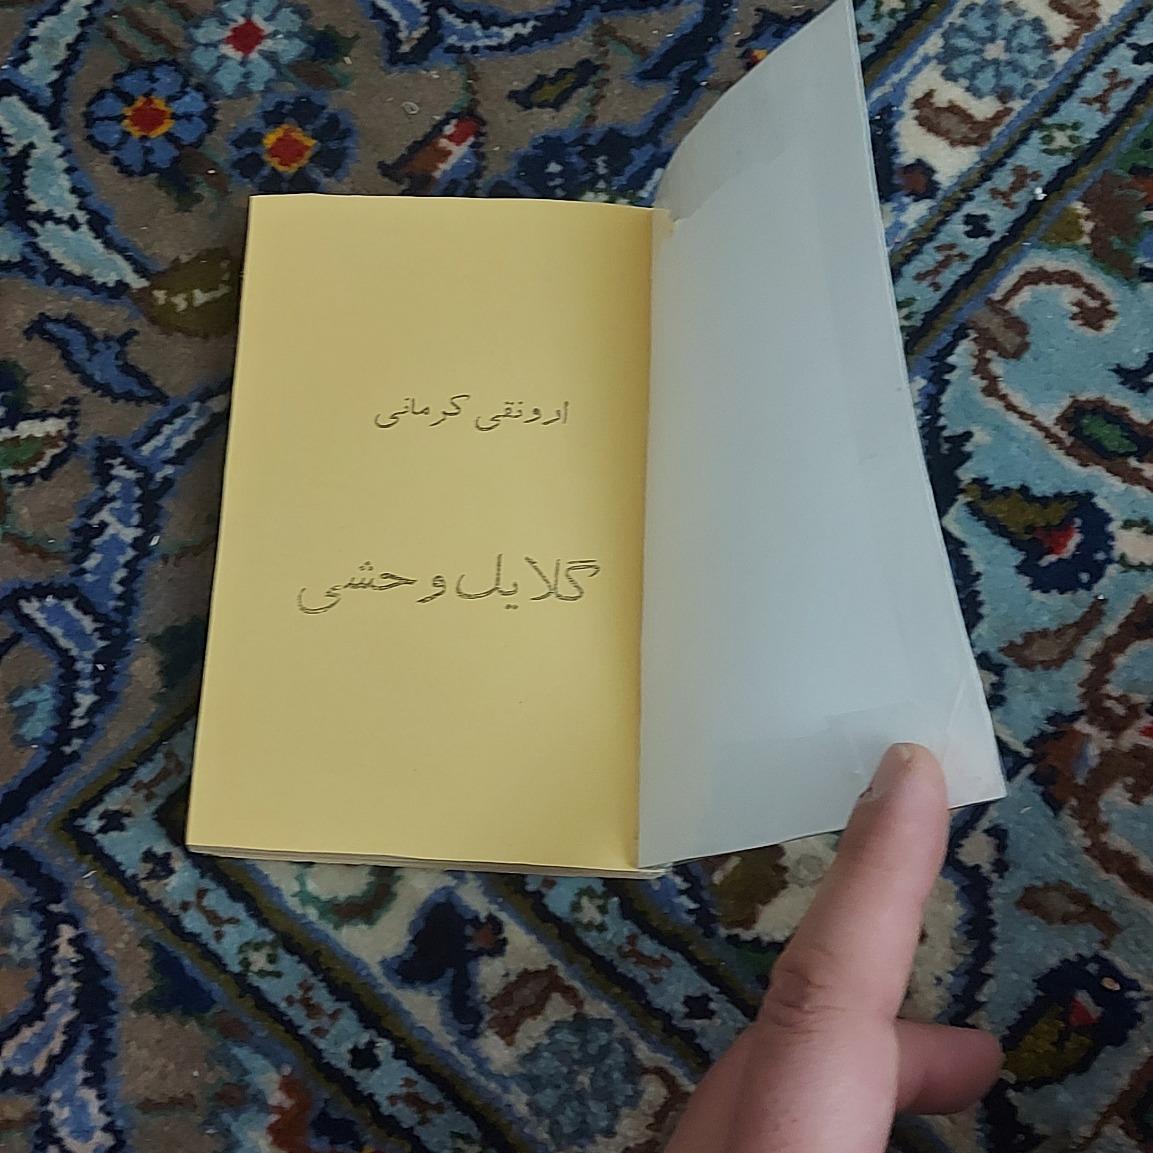 ارونقی کرمانی
گلایل وحشی